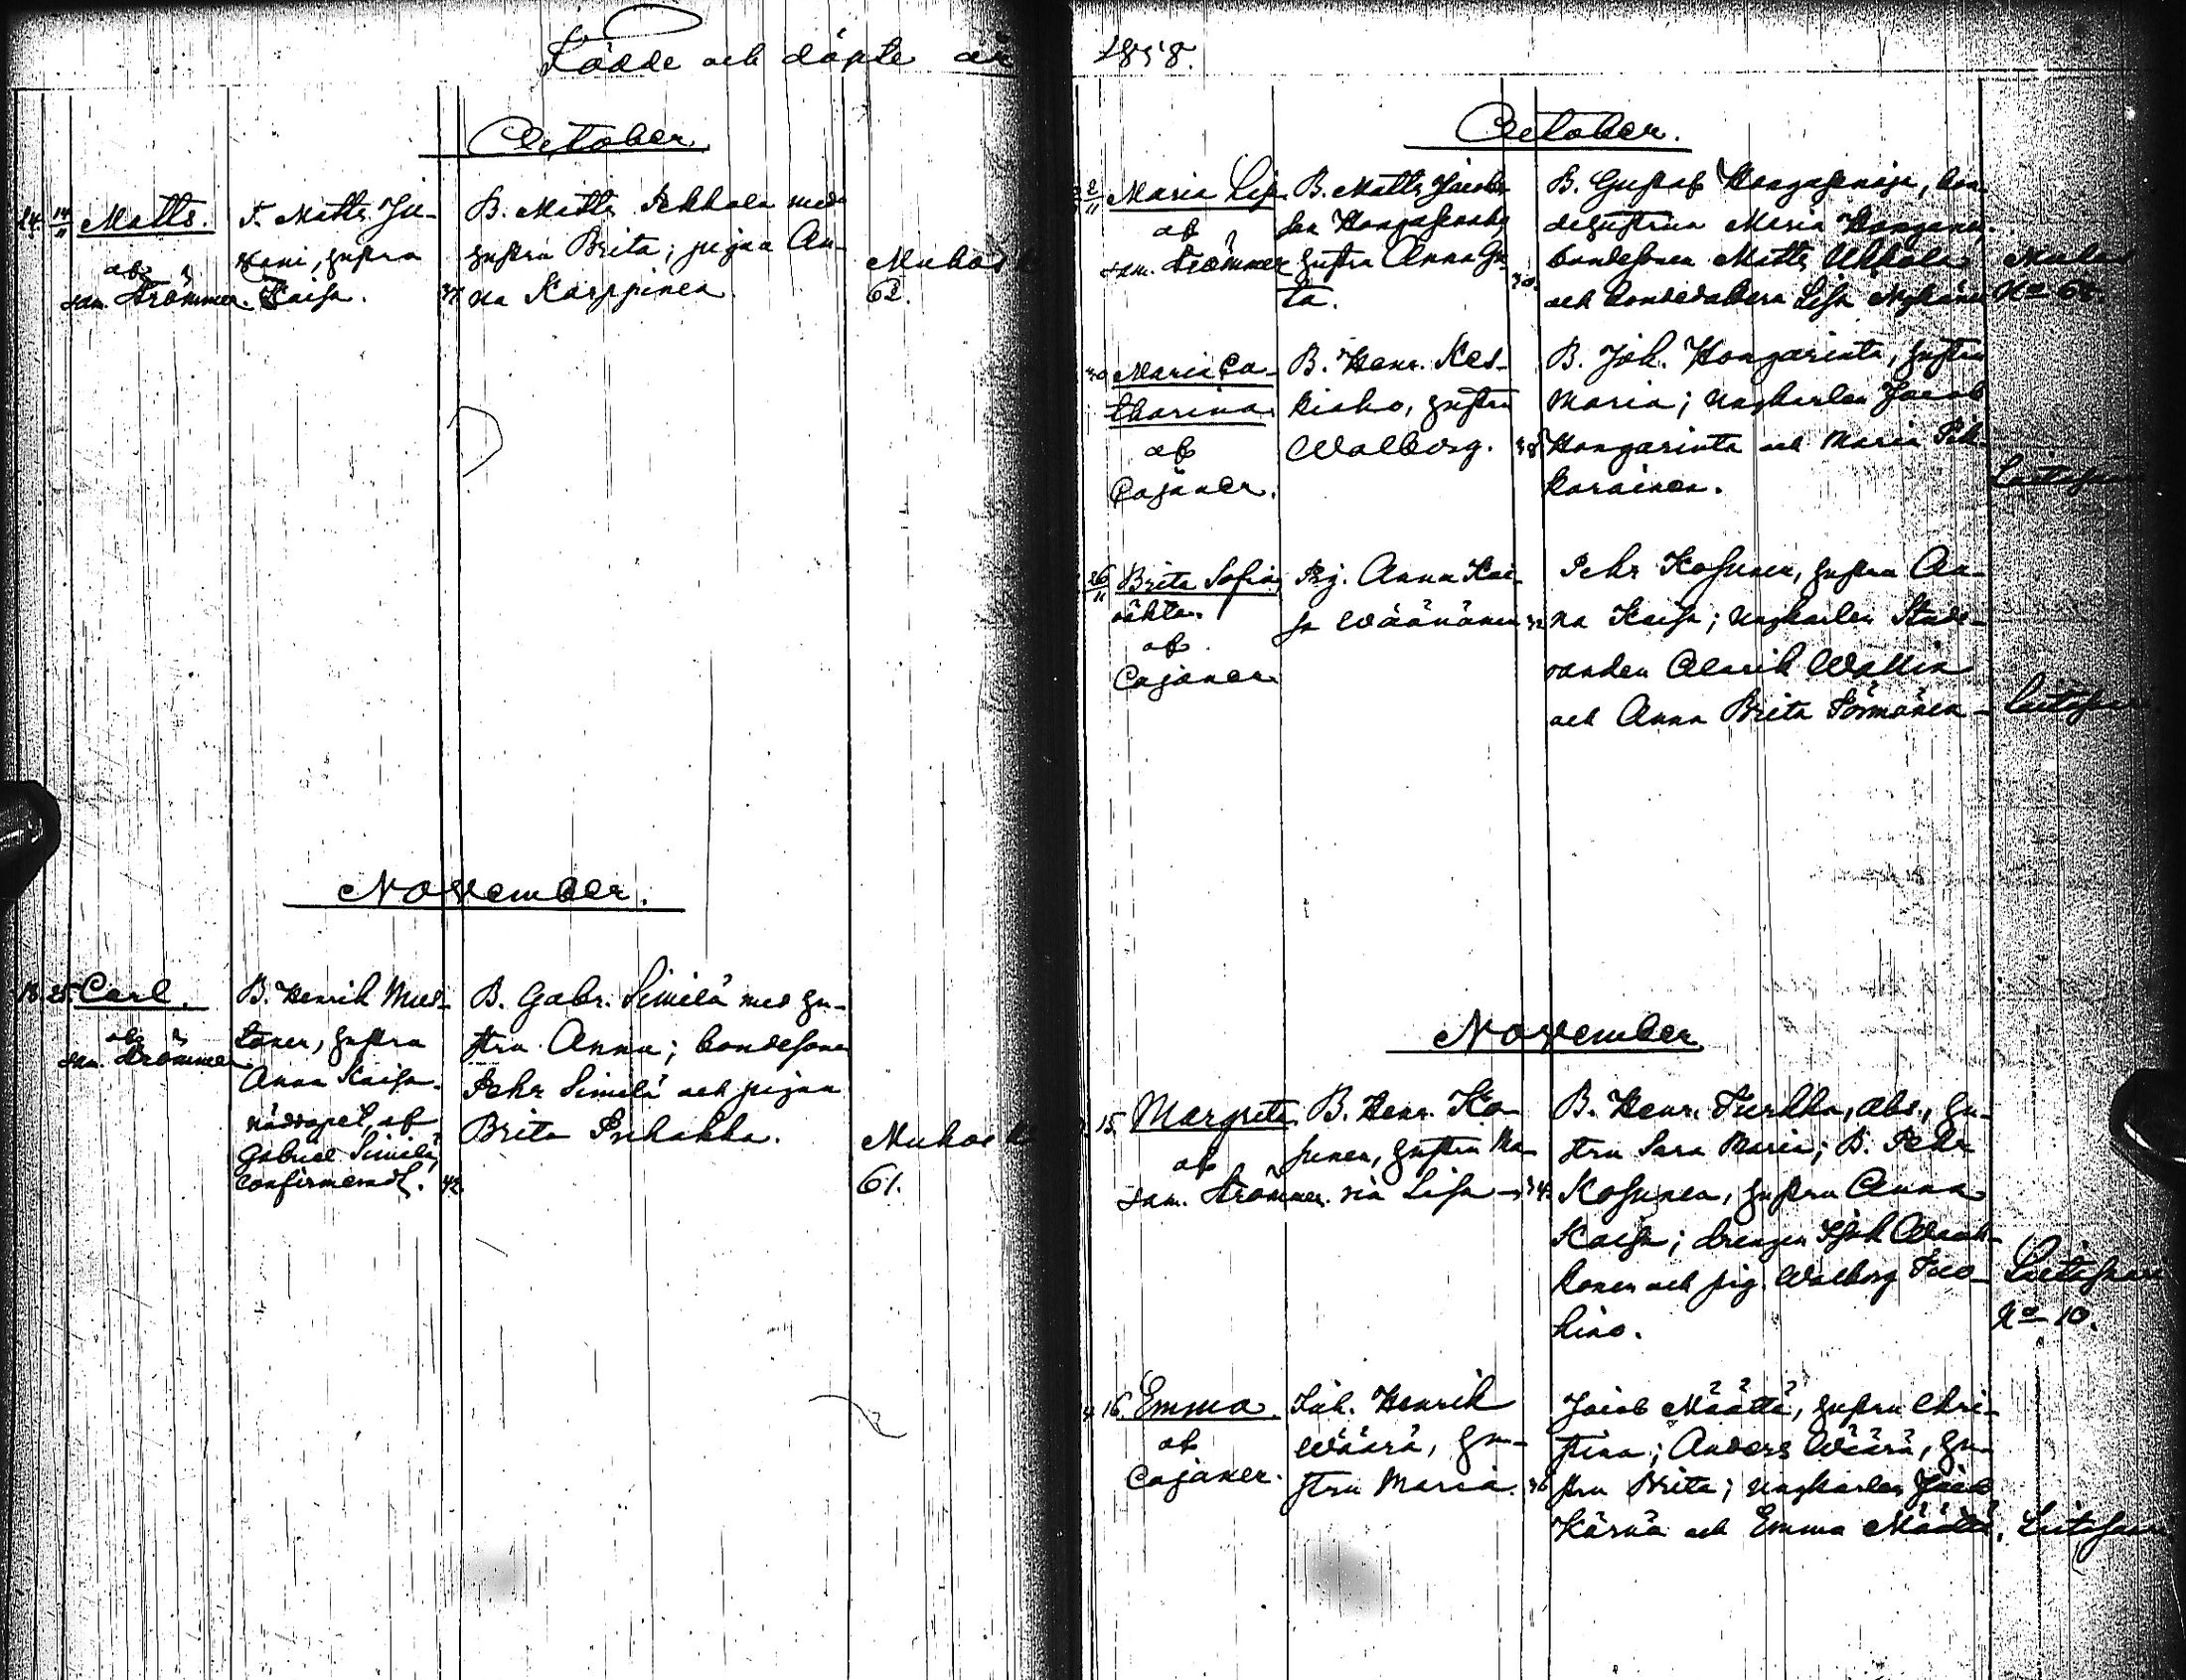 Födde och döpte år 1858.
October
24. 14/11 Matts.
af
sam. Strömmer.
T. Matts Ju-
vani, hustru
Kaisa. 37
B. Matts Pekkala med
hustru Brita; pigan An-
na Karppinen.
Muhos
62.
November.
18. 25. Carl.
af
sam. Strömmer
B. Henrik Mus-
tonen, hustru
Anna Kaisa.
nöddöpt, af
Gabriel Similä,
confirmeradt. 42.
B. Gabr. Similä med hu-
stru Anna; bondesonen
Pehr Similä och pigan
Brita Pehakka.
Muhos
61.
October.
2/11 Maria Lisa
af
sam. Strömmer
B. Matts Jacobs-
son
hustru Anna Gre-
ta. 30.
B. Gustaf bon-
dehustrun Maria
bondesonen Matts Ukkola
och bondedottern Lisa
Muhos
No 62
30 Maria Ca-
tharina
af
Cajaner.
B. Henr. Kes-
kiaho, hustru
Walborg. 38
B. Joh. Hongarinta, hustru
Maria; ungkarlen Jacob
Hongarinta och Maria Pik-
karainen.
26/11 Brita Sofia,
oäkta.
af
Cajaner
Pig. Anna Kai-
sa Wäänänen 32
Pehr Kosunen, hustru An-
na Kaisa; ungkarlen Stude-
randen Alarik Wallin
och Anna Brita Törmänen
November
15. Margreta.
af
sam. Strömmer.
B. Henr. Ko-
sunen, hustru Ma-
ria Lisa 34.
B. Henr. Turkka, abs., hu-
stru Sara Maria; B. Pehr
Kosunen, hustru Anna
Kaisa; drengen Isak
konen och pig. Walborg Tuo-
hino.
No 10.
16. Emma.
af
Cajaner.
Joh. Henrik
Wäärä, hu-
stru Maria. 36
Jacob Määttä, hustru Chri-
stina; Anders Wäärä, hu-
stru Brita; ungkarlen Jacob
Kärnä och Emma Määttä.